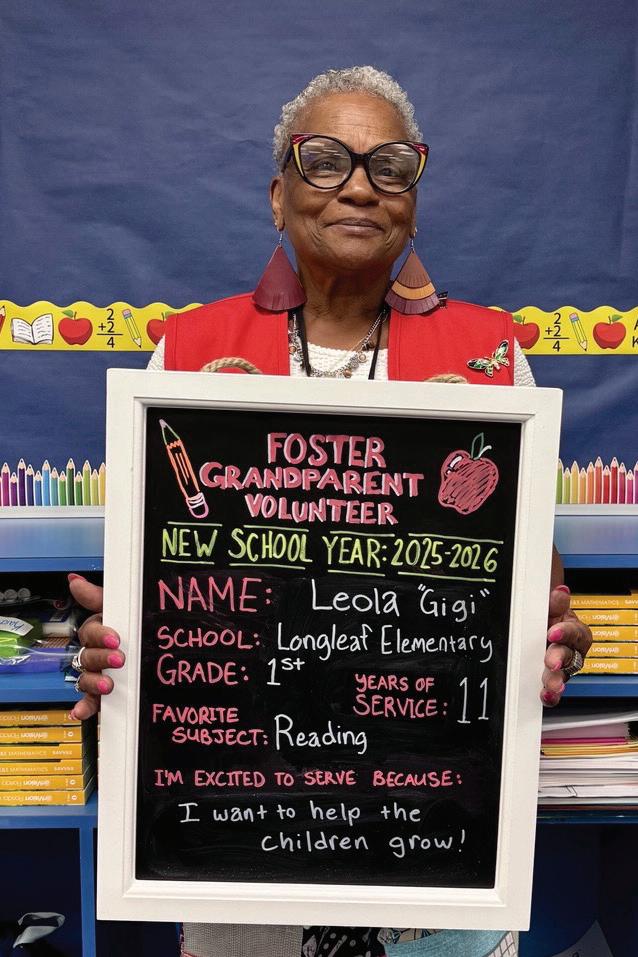 FOSTER
GRANDPARENT
VOLUNTEER
NEW SCHOOL YEAR: 2025-2026
NAME: Leola "Gigi"
SCHOOL: Longleaf Elementary
GRADE: 1st
YEARS OF
SERVICE: 11
FAVORITE
SUBJECT: Reading
I'M EXCITED TO SERVE BECAUSE:
I want to help the
children grow!
2
+2
4
2
+2
4